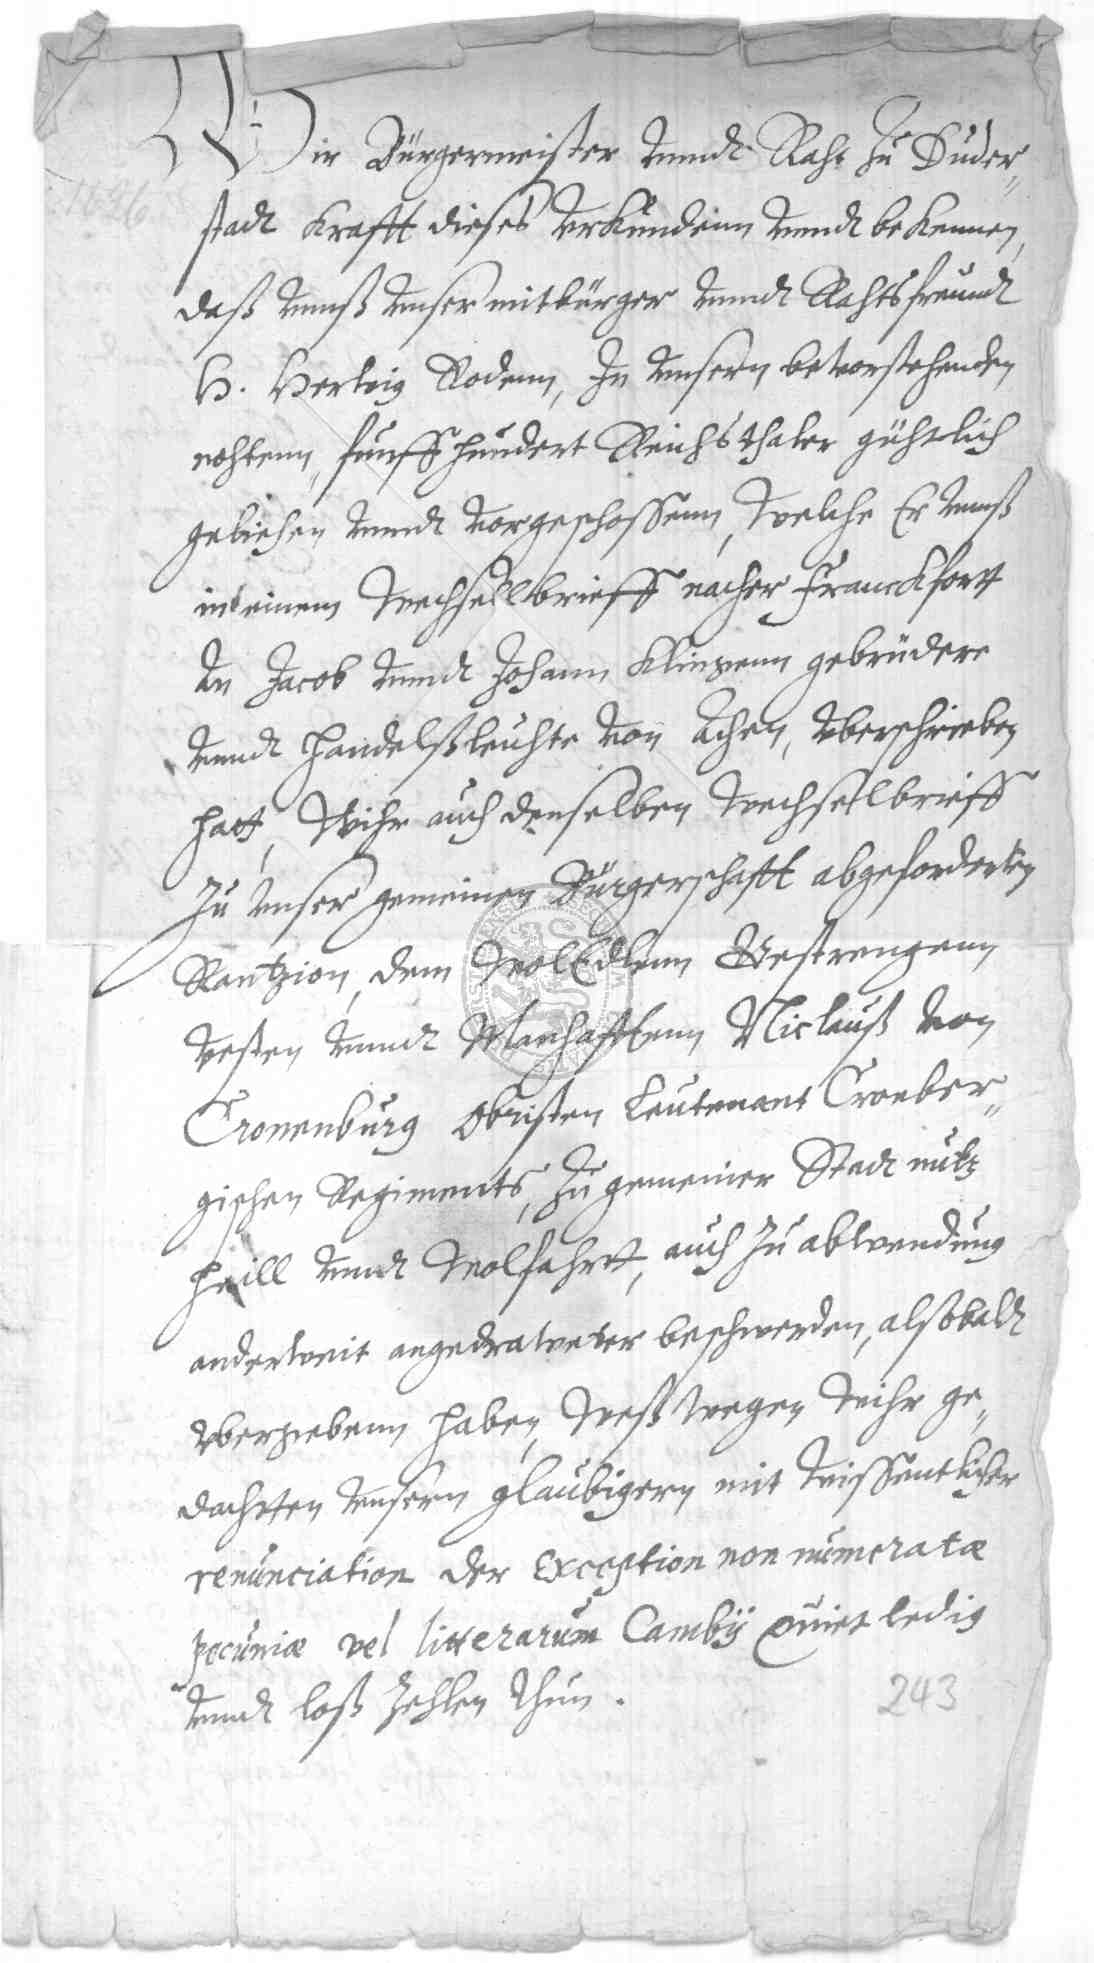 Wir Bürgermeister unndt Raht zu Duder„
stadt krafft dieses urkundenn unndt bekennen,
daß unnß unser mitbürger unndt Rahtsfreundt
H. Hertwig Rodenn, In unsern bevorstehenden
nohtenn, funffhundert Reichsthaler gühtlich
geliehen unndt vorgeschossenn, welche Er unnß
in einem Wechsellbrieff nacher Franckfort
An Jacob unndt Johann gebrüdere
unndt Handelßleuhte von Achen, uberschrieben
hatt, Wihr auch denselben Wechsellbrieff
Zu unser gemeinen Bürgerschafft abgeforderten
Rantzion, dem WolEdlenn Gestrengenn
Vesten unndt Manhafftenn Niclauß von
Cronenburg Obristen Leutenant Cronber„
gischen Regiments, Zu gemeiner Stadt nutz
heill unndt Wolfahrt, auch Zu abwendung
anderweit angedraweter beschwerden, alßbaldt
ubergebenn haben, Weßwegen Wihr ge„
dachten unsern glaubigern mit wissentlicher
renunciation der Exception non numeratæ
pecuniæ vel litterarum Cambij quiet ledig
unndt loß Zehlen thun.
243
1626